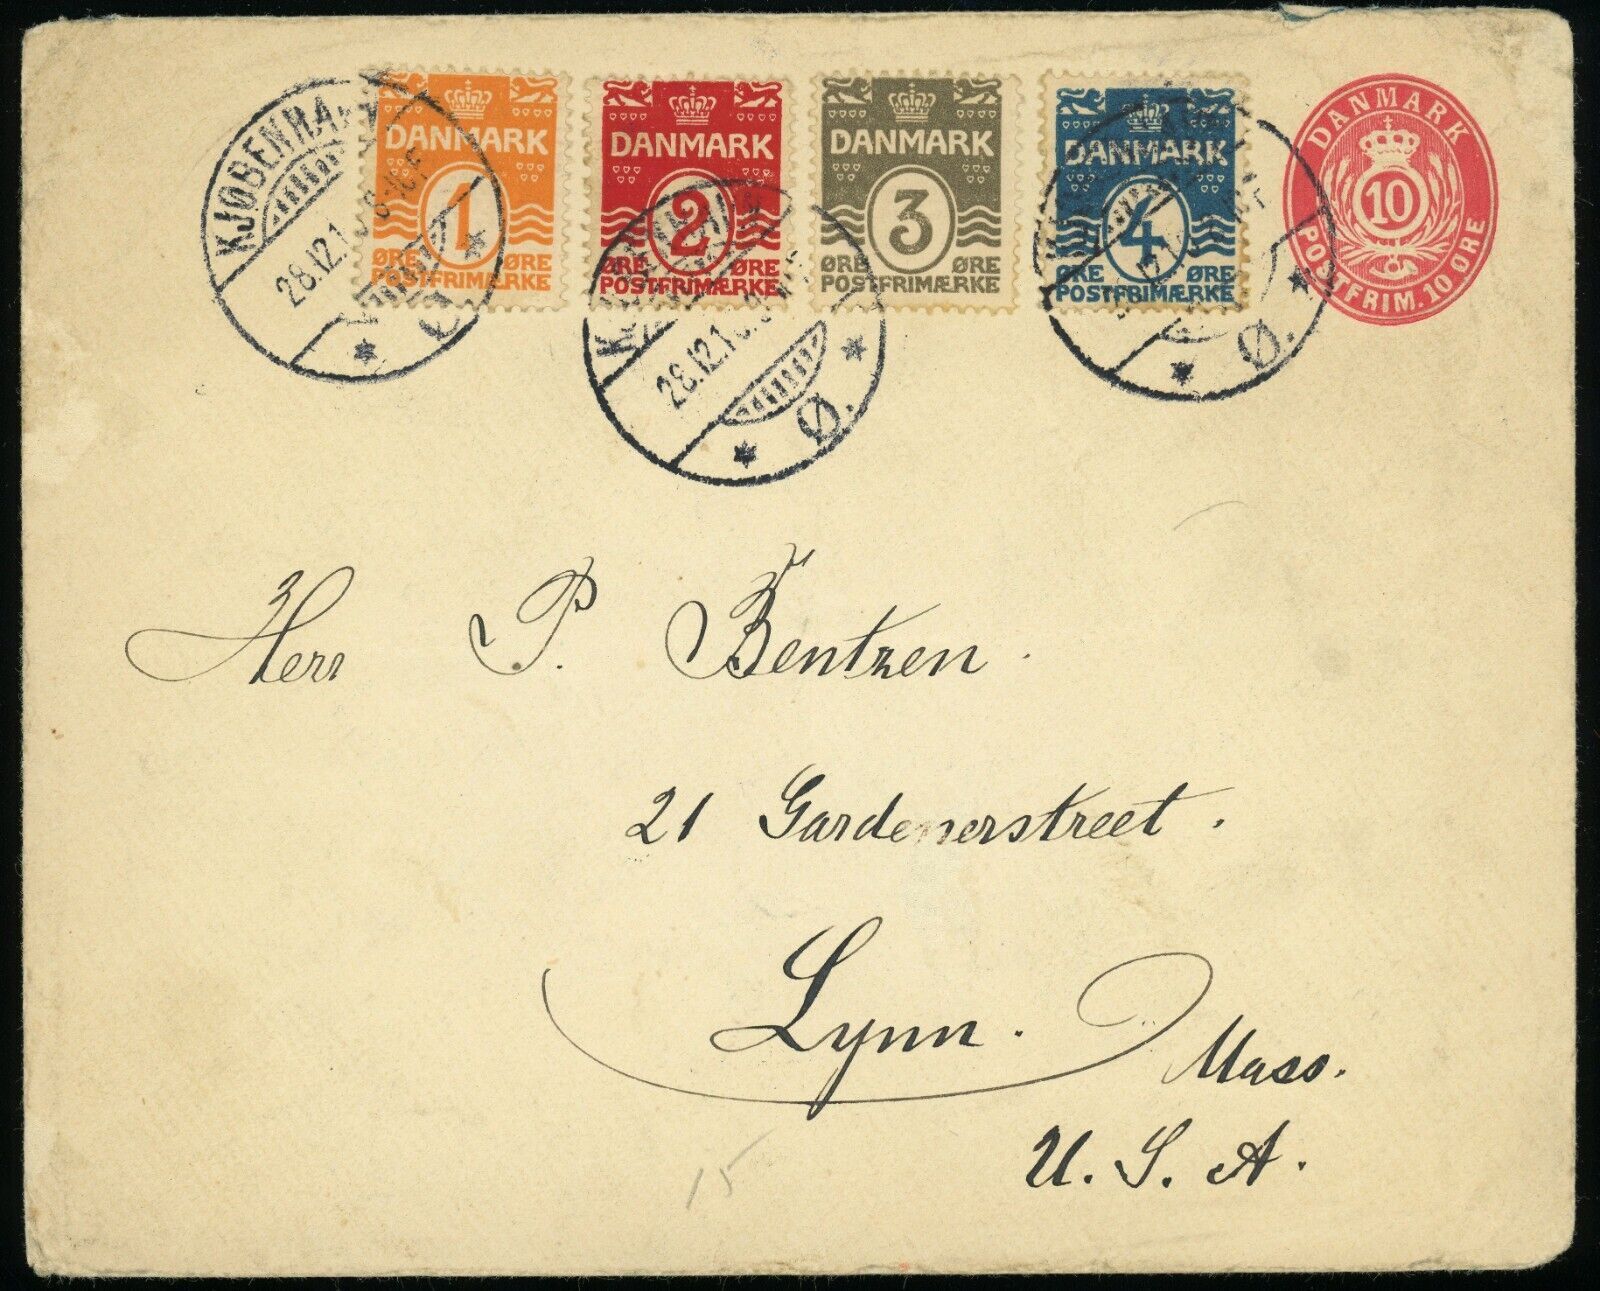 DANMARK
1
ØRE ØRE
POSTFRIMÆRKE
DANMARK
2
ØRE ØRE
POSTFRIMÆRKE
DANMARK
3
ØRE ØRE
POSTFRIMÆRKE
DANMARK
4
ØRE ØRE
POSTFRIMÆRKE
DANMARK
10
POSTFRIM. 10 ØRE
28.12.1
Ø.
28.12.1
Ø.
Ø.
Herr P. Bentzen.
21 Gardenerstreet.
Lynn. Mass.
U. S. A.
15